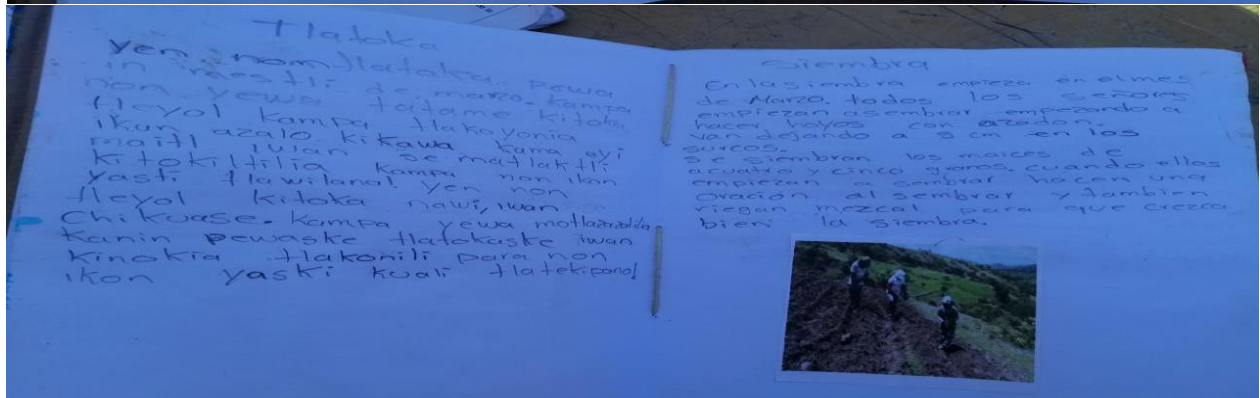 Tlatoka
yen nom tlatoka. pewa
in mestli de marzo. kampa
non yewa tatame kitoka
tleyol kampa tlakoyonia
ikan azalo kikawa kama eyi
maitl iwan se matlaktli
kitokiltilia kampa non ikon
yasti tlawilanal yen non
tleyol kitoka nawi, iwan
Chikuase. kampa yewa
kanin pewaske tlatokaske iwan
kinokia tlakonili para non
ikon yaski kuali tlatekipanol
Siembra
En la siembra empieza en el mes
de Marzo. todos los señores
empiezan a sembrar empezando a
hacer hoyos con azadon.
van dejando a 9 cm en los
surcos.
se siembran los maices de
acuatro y cinco granos. cuando ellos
empiezan a sembrar hacen una
oración al sembrar y tambien
riegan mezcal para que crezca
bien la siembra.